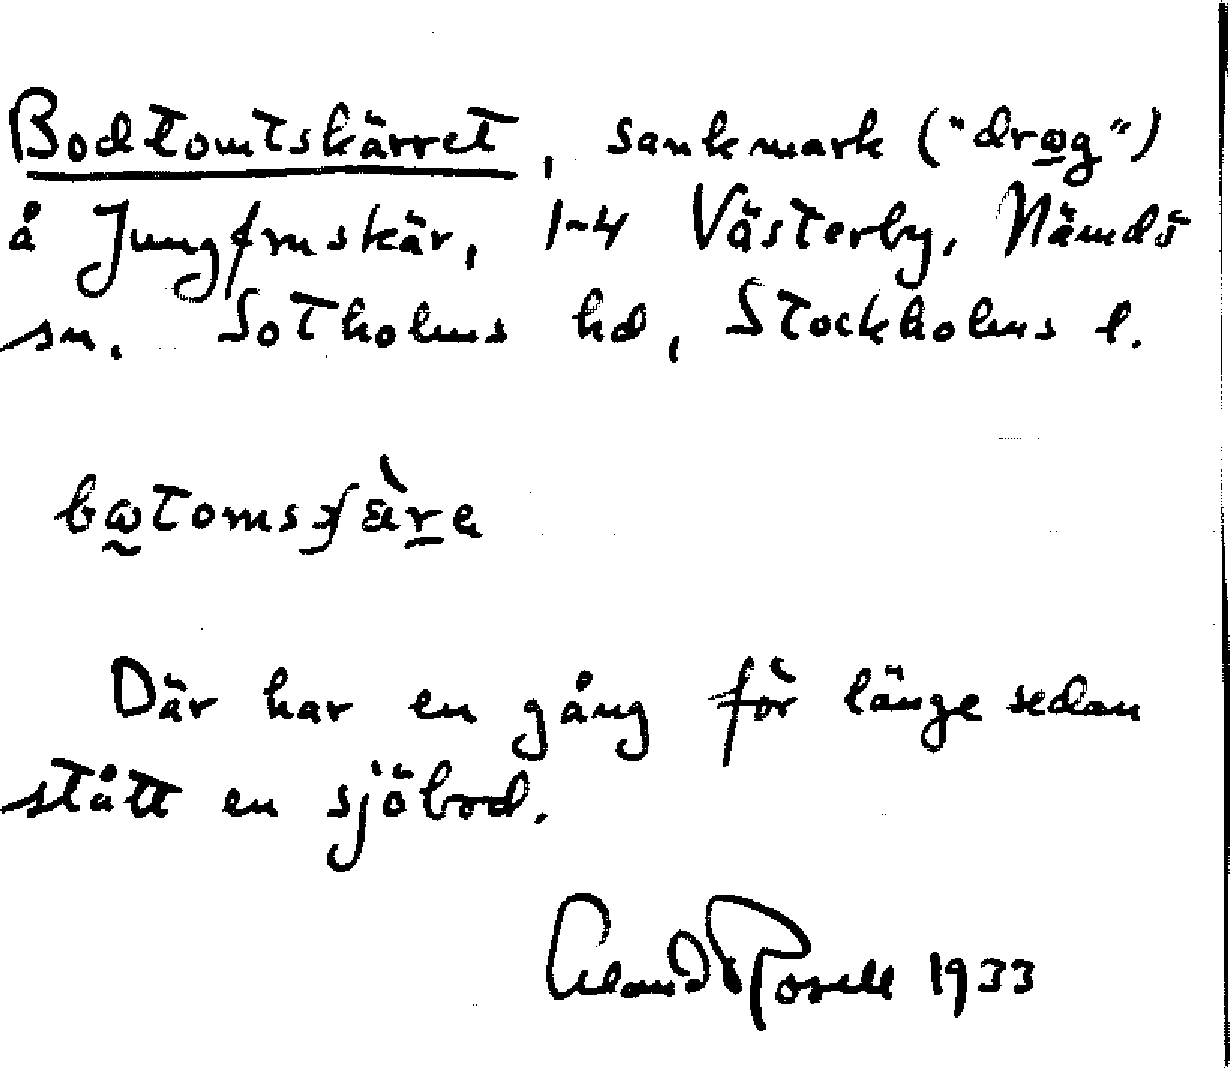 Bodtomtskärret, sankmark ("drωg")
å Jungfruskär, 1-4 Västerby, Nämdö
sn. Sotholms hd, Stockholms l.
Där har en gång för länge sedan
stått en sjöbod.
Rosell 1933